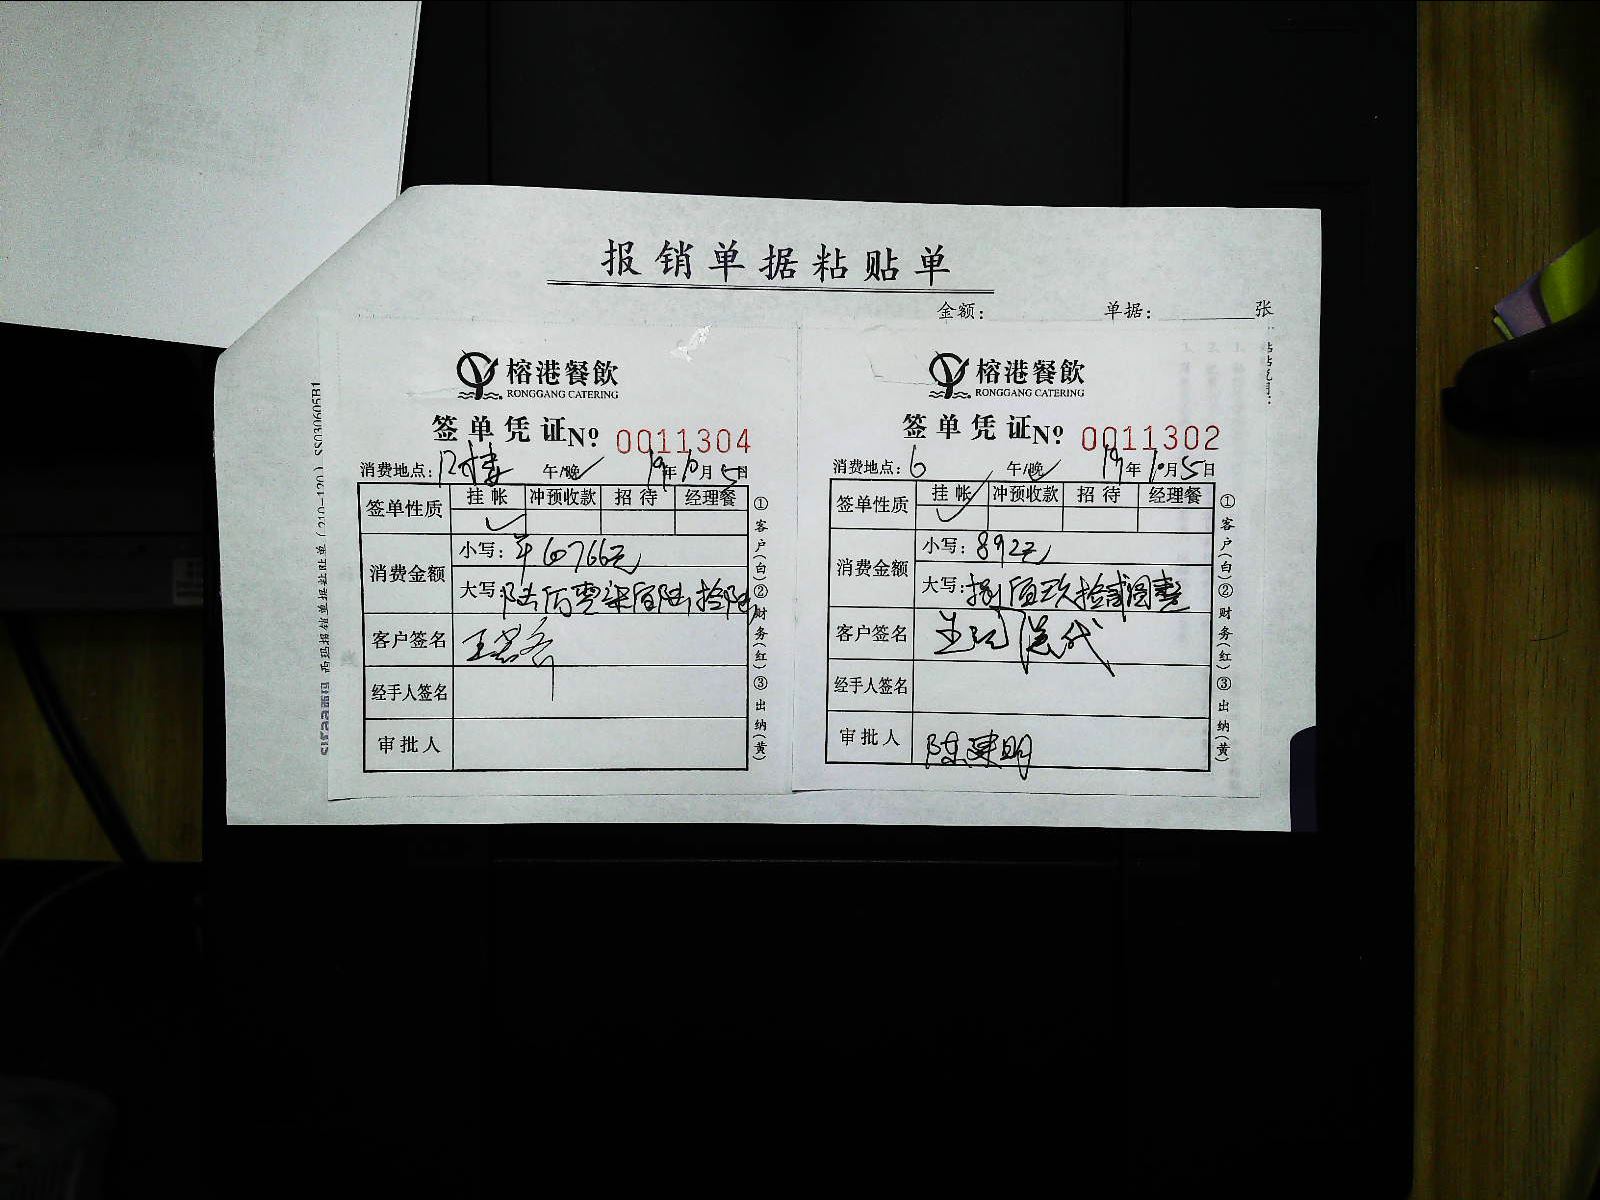 报销单据粘贴单
金额： 单据： 张
榕港餐飲
RONGGANG CATERING
签单凭证 № 0011304
消费地点： 楼 午/晚 19年10月5日
签单性质 挂帐 冲预收款 招待 经理餐
✓
消费金额 小写： 766元
大写：陆仟零柒佰陆拾陆
客户签名
经手人签名
审批人
①客户(白)②财务(红)③出纳(黄)
榕港餐飲
RONGGANG CATERING
签单凭证 № 0011302
消费地点：6 午/晚 19年10月5日
签单性质 挂帐 冲预收款 招待 经理餐
✓
消费金额 小写：892元
大写：捌佰玖拾贰圆整
客户签名
经手人签名
审批人 陈建明
①客户(白)②财务(红)③出纳(黄)